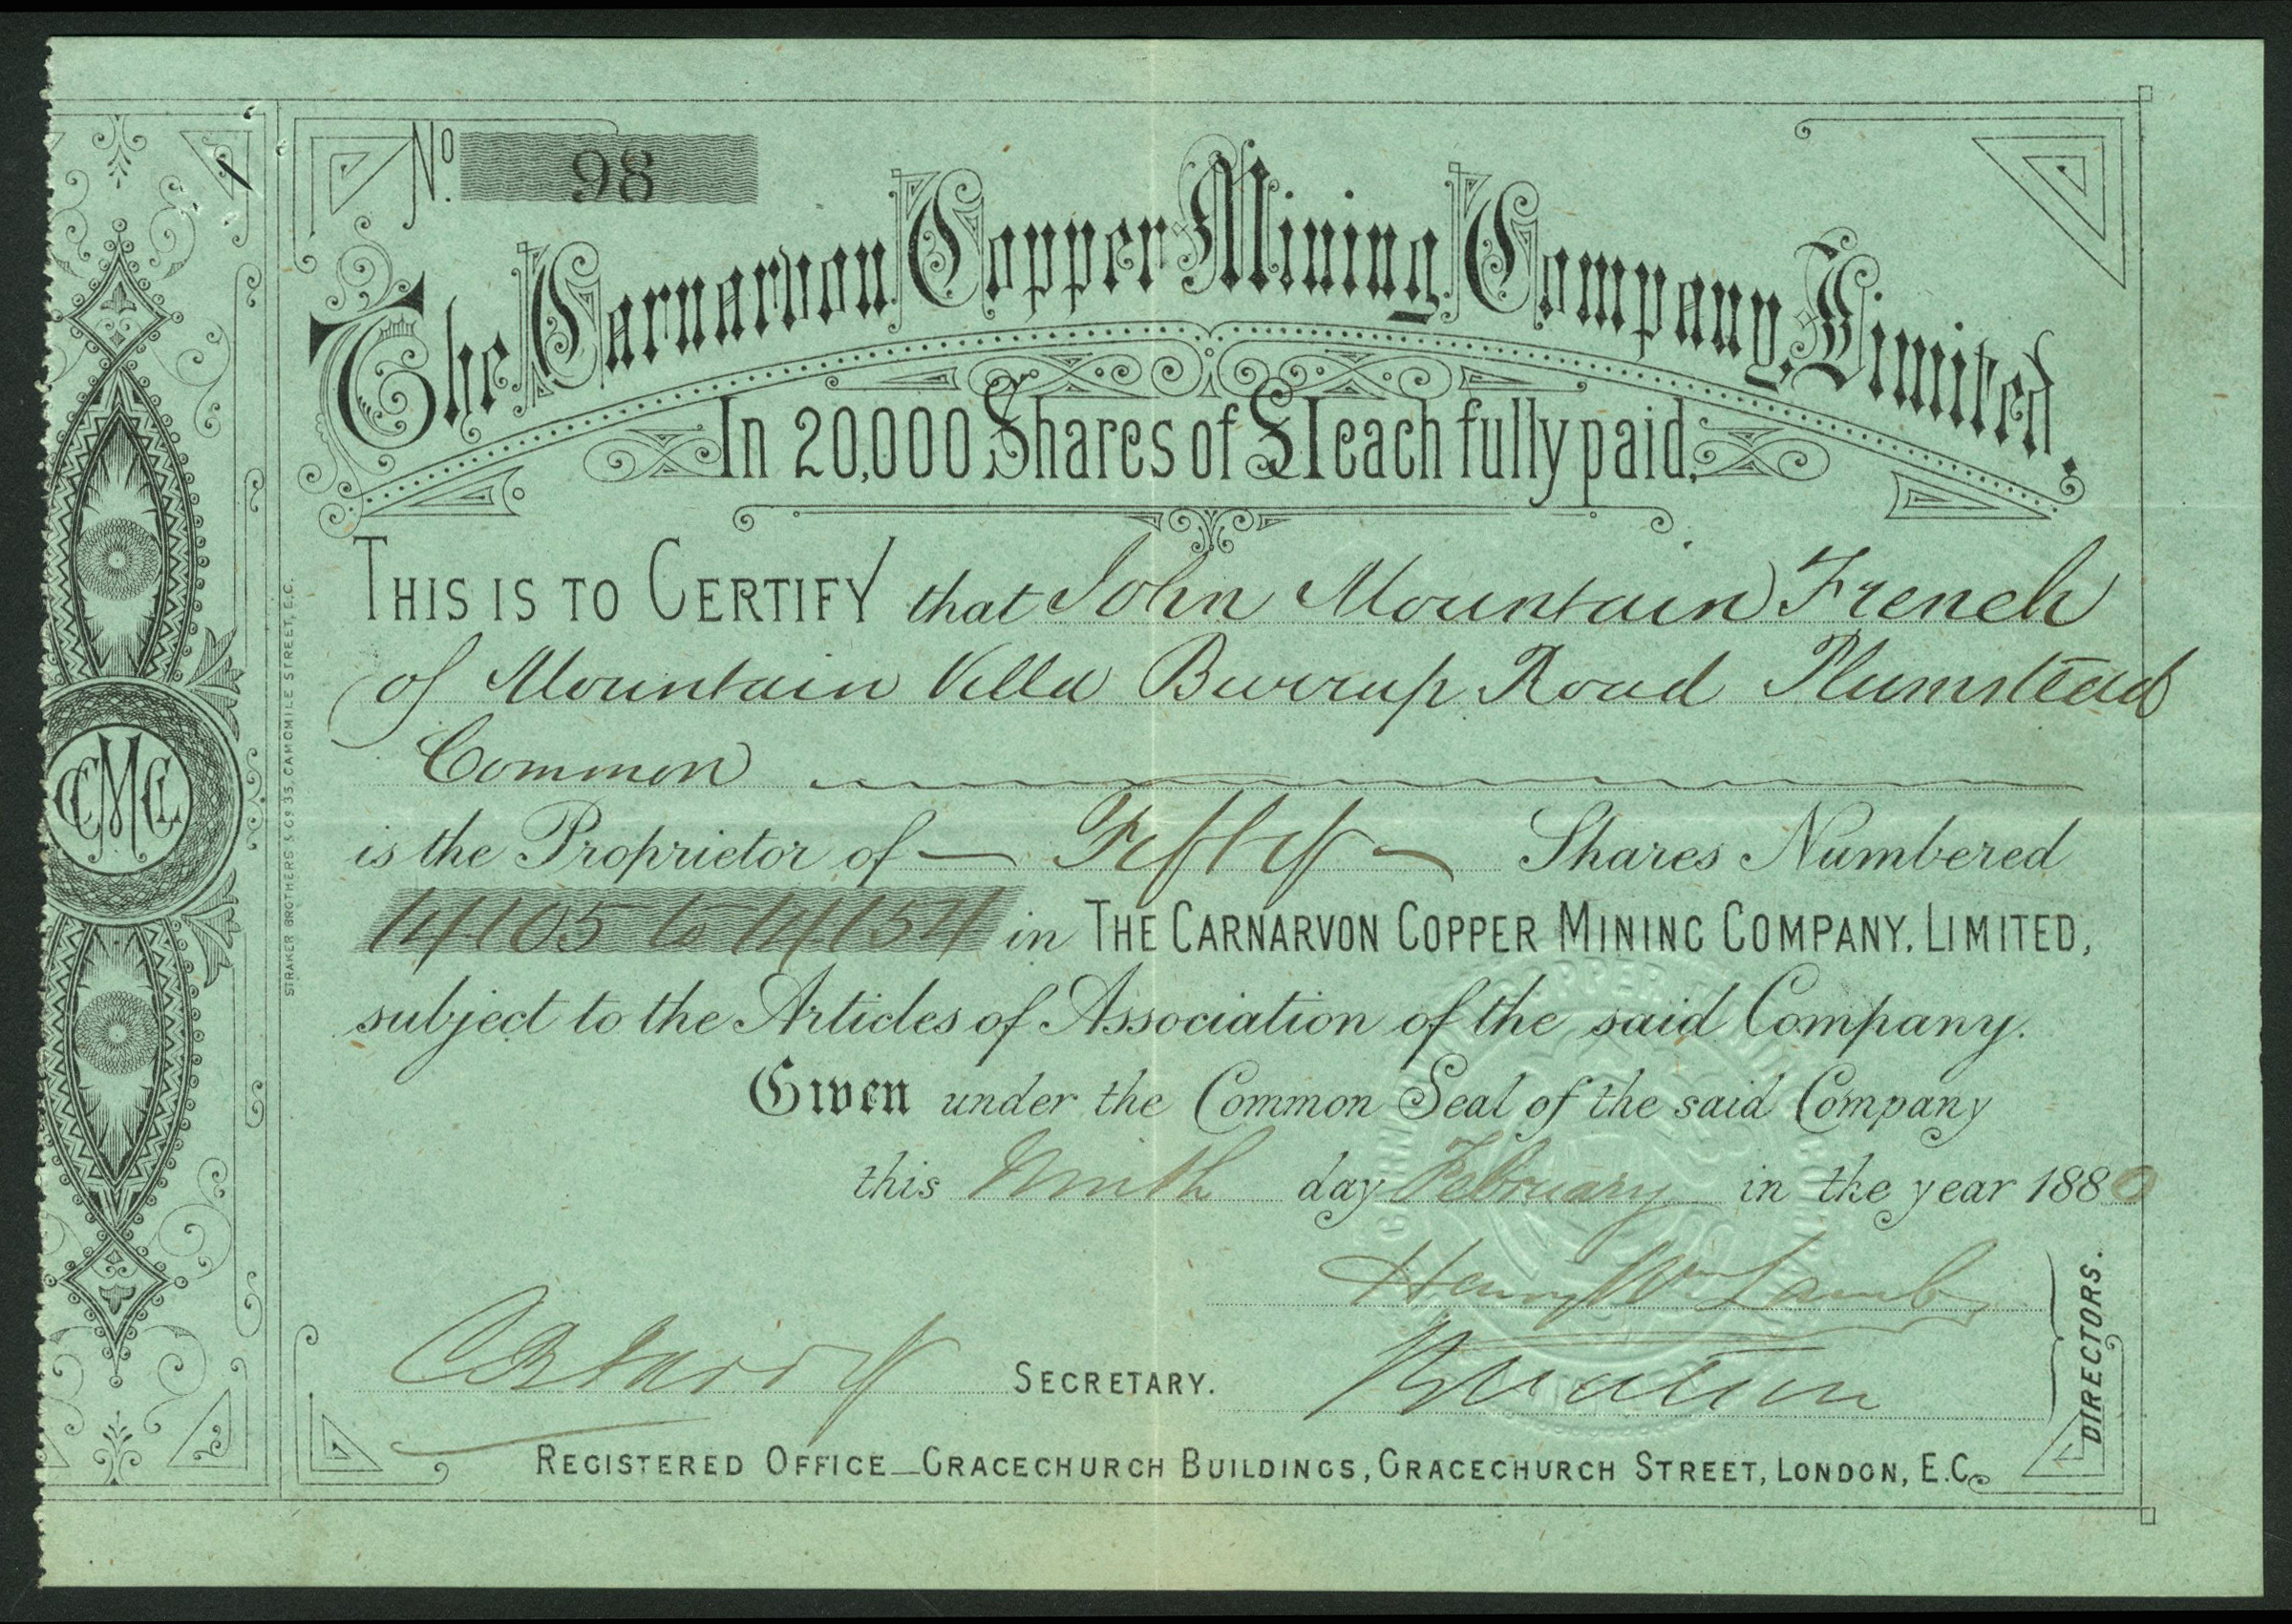 No. 98
The Carnarvon Copper Mining Company, Limited.
In 20,000 Shares of £1 each fully paid.
THIS IS TO CERTIFY that John Mountain French
of Mountain Villa Burrup Road Plumstead
Common
is the Proprietor of — Fifty — Shares Numbered
14105 to 14154 in THE CARNARVON COPPER MINING COMPANY, LIMITED,
subject to the Articles of Association of the said Company.
Given under the Common Seal of the said Company
this Ninth day February in the year 1880
Henry Wm Lamb
SECRETARY.
DIRECTORS.
REGISTERED OFFICE—GRACECHURCH BUILDINGS, GRACECHURCH STREET, LONDON, E.C.
STRAKER BROTHERS & Co. 35, CAMOMILE STREET, E.C.
CCMCL